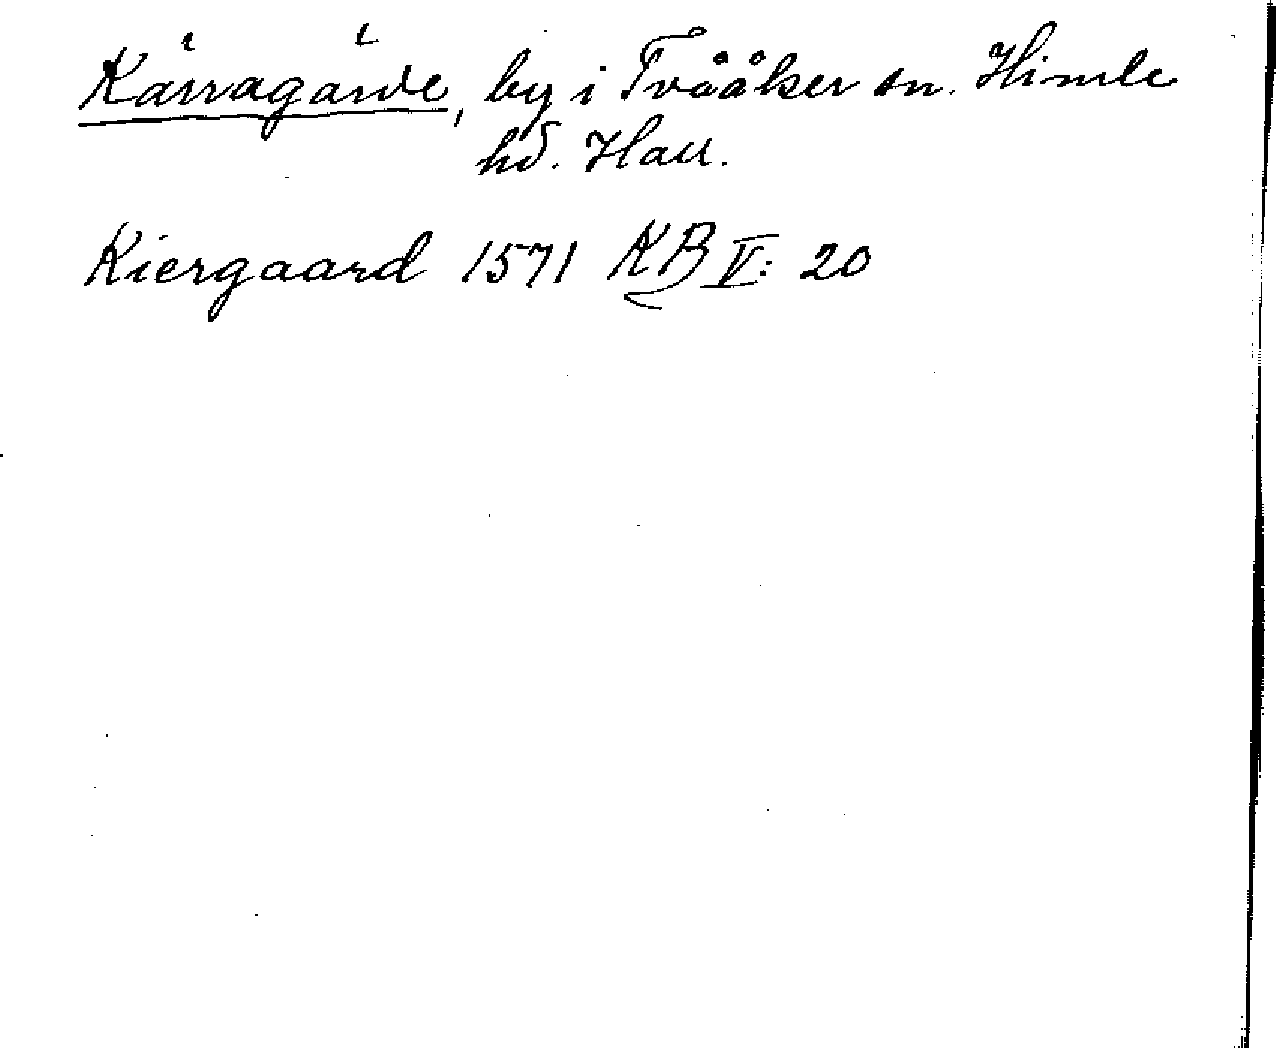 Kärragärde, by i Tvååker sn. Himle
hd. Hall.
Kiergaard 1571 KB V: 20